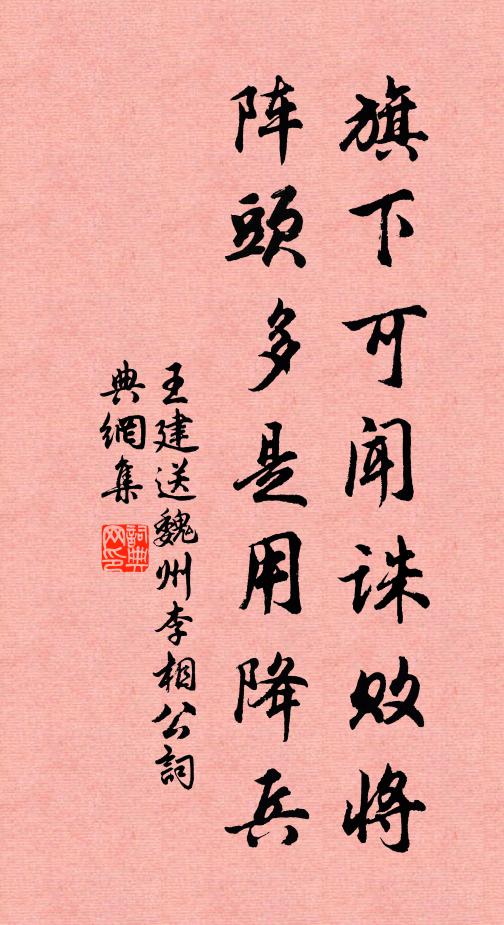 旗下可闻诛败将
阵頭多是用降兵
王建送魏州李相公詞
典網集
詞典
网印